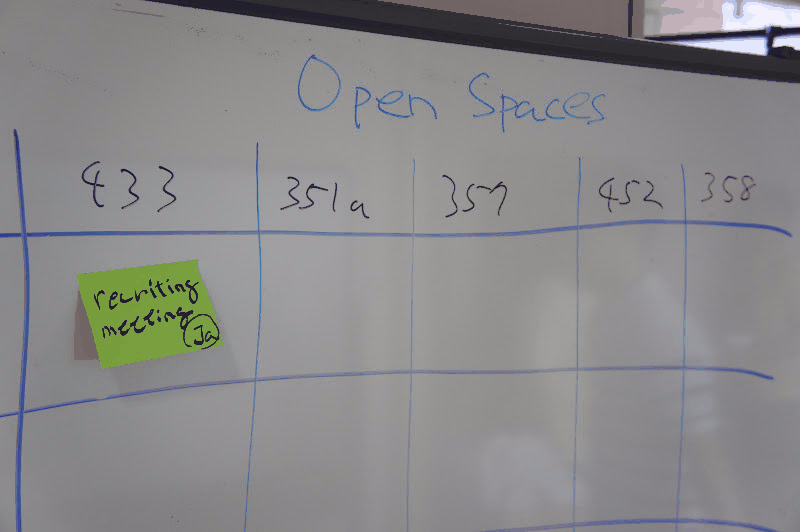 Open Spaces
433 351a 357 452 358
recriting
meeting
Ja